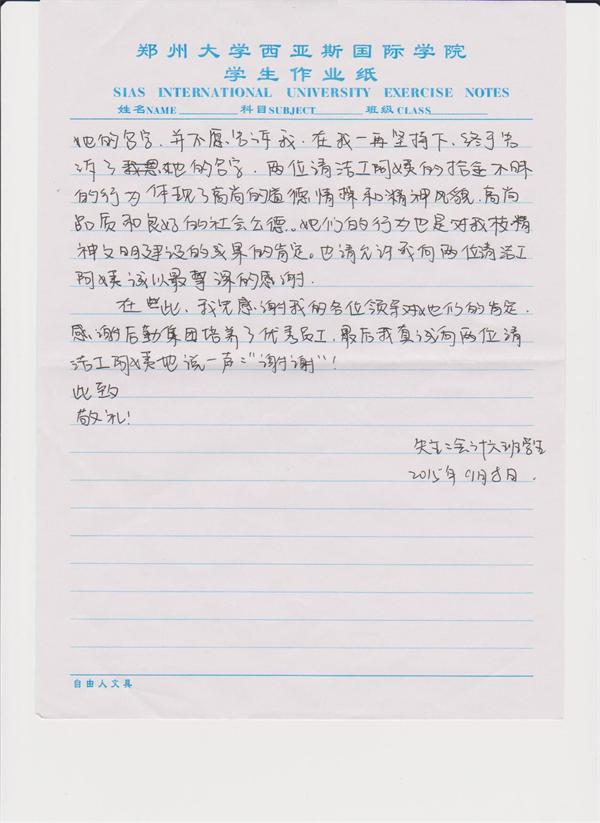 郑州大学西亚斯国际学院
学生作业纸
SIAS INTERNATIONAL UNIVERSITY EXERCISE NOTES
姓名NAME 科目SUBJECT 班级CLASS
她的名字,并不愿告诉我,在我一再坚持下,终于告
诉了我她的名字,两位清洁工阿姨的拾金不昧
的行为体现了高尚的道德情操和精神风貌,高尚
品质和良好的社会公德。她们的行为也是对我校精
神文明建设的成果的肯定。也请允许我向两位清洁工
阿姨诚以最尊深的感谢.
在此,我先感谢我的各位领导对她们的肯定,
感谢后勤集团培养了优秀员工,最后我真诚向两位清
洁工阿姨地说一声:“谢谢”!
此致
敬礼!
失主:会计六班学生
2015年9月8日.
自由人文具